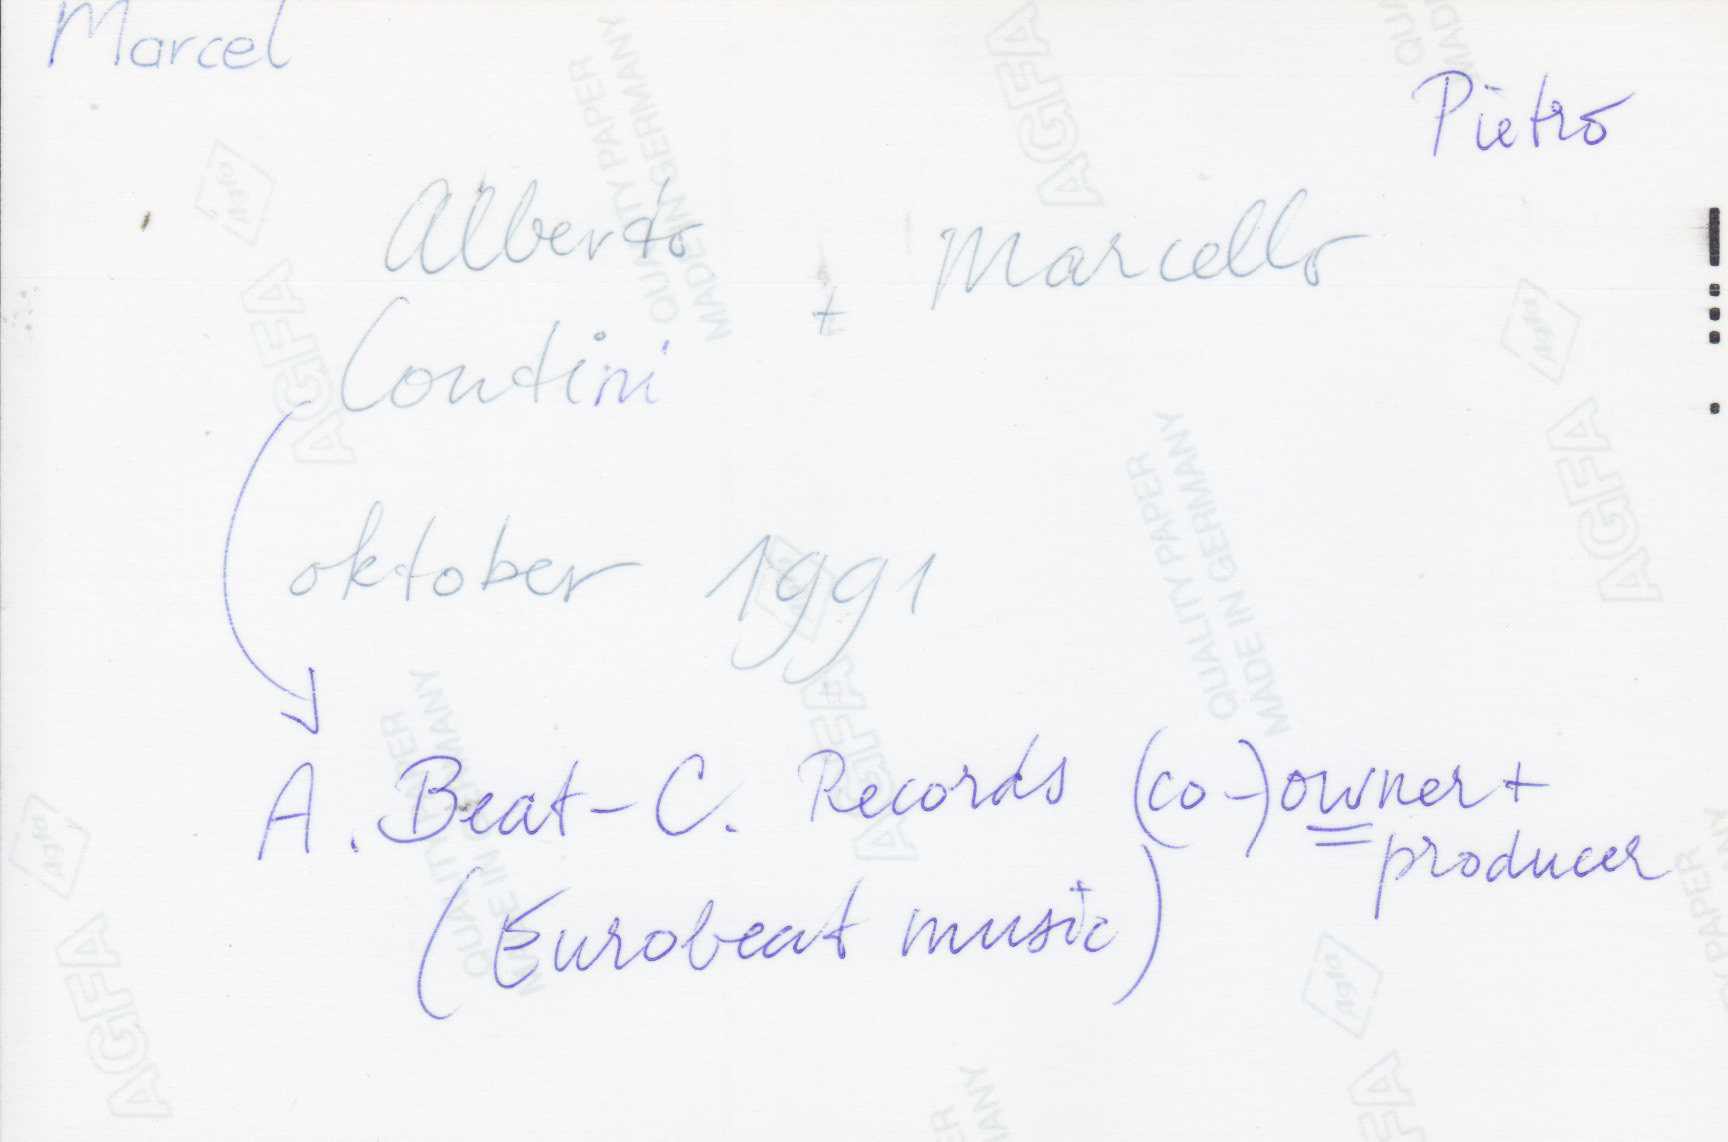 Marcel
Pietro
Alberto + Marcello
Contini
oktober 1991
A. Beat-C. Records (co-)owner +
producer
(Eurobeat music)
AGFA
QUALITY PAPER
MADE IN GERMANY